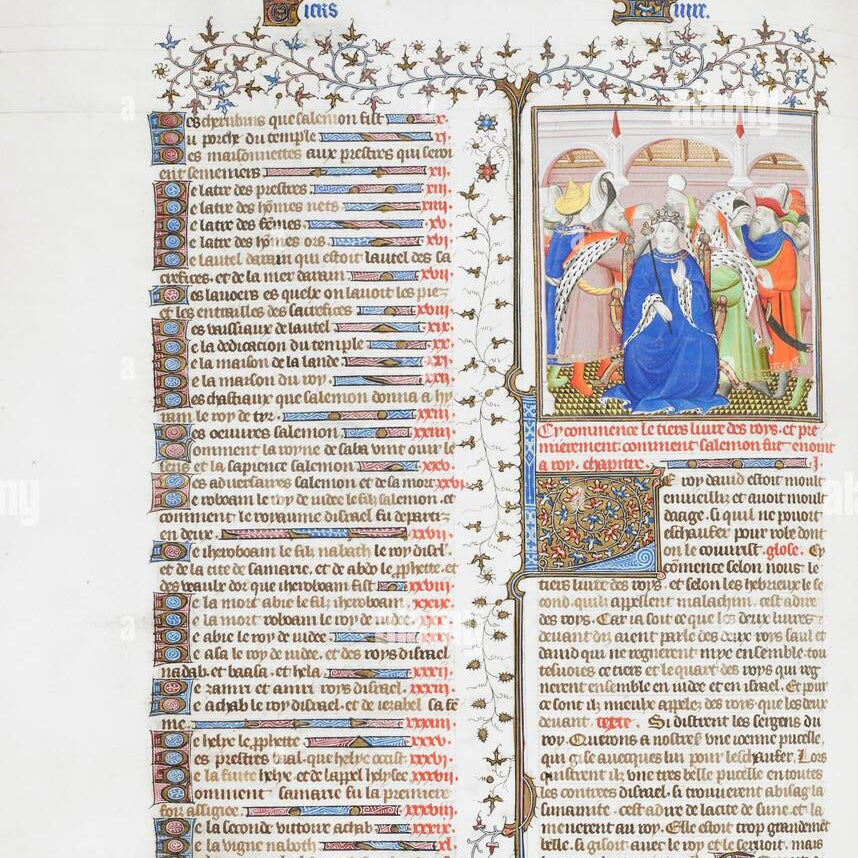 Tiers
liure.
es cherubins que salemon fist .x.
u porche du temple .xi.
es maisonnettes aux prestres qui seroi
ent semeniers .xii.
e latre des prestres .xiii.
e latre des hommes nets .xiiii.
e latre des femes .xv.
e latre des homes ors .xvi.
e lautel darain qui estoit lautel des sa
crefices. et de la mer darain .xvii.
es lauoers es quelx on lauoit les piez
et les entrailles des sacrefices .xviii.
es vaissiaux de lautel .xix.
e la dedicacion du temple .xx.
e la maison de la lande .xxi.
e la maison du roy .xxii.
es chastiaux que salemon donna a hy
ram le roy de tyr .xxiii.
es oeuures salemon .xxiiii.
omment la royne de saba vint ouir le
sens et la sapience salemon .xxv.
es aduersaires salemon et de sa mort .xxvi.
e roboam le roy de iudee le filz salemon. et
comment le royaume disrael fu departi
en deux. .xxvii.
e iheroboam le filz nabath le roy disrl.
et de la cite de samarie. et de abdo le prophete. et
des veaulx dor que iheroboam fist .xxviii.
e la mort abie le filz iheroboam .xxix.
e la mort roboam le roy de iudee .xxx.
e abie le roy de iudee .xxxi.
e asa le roy de iudee. et des roys disrael
nadab. et baasa. et hela .xxxii.
e zamri et amri roys disrael .xxxiii.
e achab le roy disrael. et de iezabel sa fe
me. .xxxiiii.
e helye le prophete .xxxv.
es prestres baal. que helye occist .xxxvi.
e la fuite helye. et de lappel helysee .xxxvii.
omment samarie fu la premiere
foiz assigee .xxxviii.
e la seconde victoire achab .xxxix.
e la vigne naboth .xl.
Cy commence le tiers liure des roys. et pre
mierement comment salemon fut enoint
a roy. chapitre .i.
E roy dauid estoit moult
enuieilliz et auoit moult
daage. si quil ne pouoit
eschaufer pour robe dont
on le couurist. glose. Cy
commence selon nous le
tiers liure des roys. et selon les hebrieux le se
cond. quilz appellent malachim. cest a dire
des roys. Car ia soit ce que les deux liures
deuant diz aient parle des deux roys saul et
dauid qui ne regnerent mye ensemble. tou
tesuoies ce tiers et le quart des roys qui reg
nerent ensemble en iudee et en israel. Et pour
ce sont ilz mieulx appelez des roys que les deux
deuant. texte. Si distrent les sergens du
roy. Querons a nostre sire vne ioenne pucelle,
qui gise auecques lui pour leschaufer. Lors
quistrent ilz vne tres belle pucelle en toutes
les contrees disrael. si trouuerent abisag la
sunamite. cest a dire de la cite de sune. et la
menerent au roy. Elle estoit trop grandement
belle. si gisoit auec le roy et le seruoit. mais